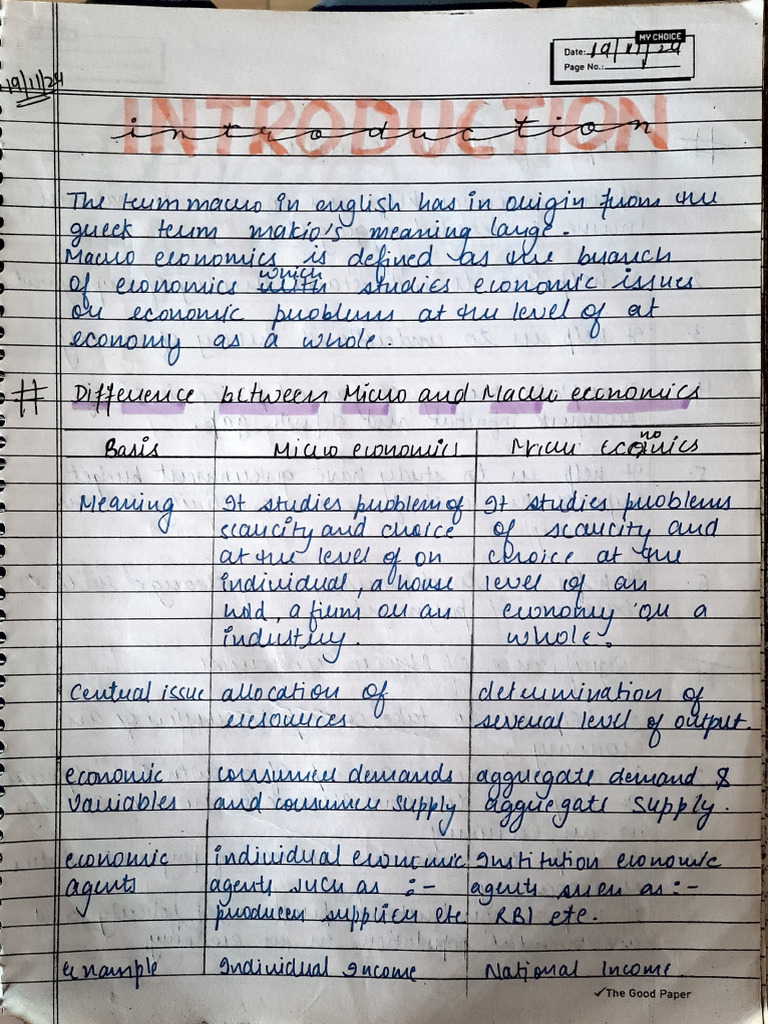 MY CHOICE
Date: 19/11/24
Page No.:
19/11/24
INTRODUCTION
introduction
The term macro in english has in origin from the
greek term makro's meaning large.
Macro economics is defined as the branch
of economics which studies economic issues
or economic problems at the level of at
economy as a whole.
# Difference between Micro and Macro economics
Basis Micro economics economics
Meaning It studies problem of It studies problems
scarcity and choice of scarcity and
at the level of on choice at the
individual, a house level of an
hold, a firm or an economy or a
industry. whole.
Central issue allocation of determination of
resources several level of output.
economic consumer demands aggregate demand &
variables and consumer supply aggregate supply.
economic individual economic Institution economic
agents agents such as :- agents such as :-
producer supplier etc RBI etc.
Example Individual Income National Income.
✓The Good Paper